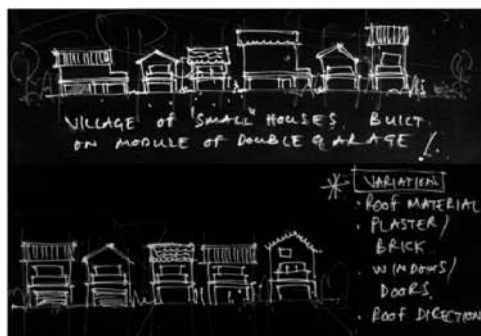 VILLAGE OF "SMALL" HOUSES, BUILT
ON MODULE OF DOUBLE GARAGE!
* VARIATION
· ROOF MATERIAL
· PLASTER/
BRICK
· WINDOWS/
DOORS
· ROOF DIRECTION